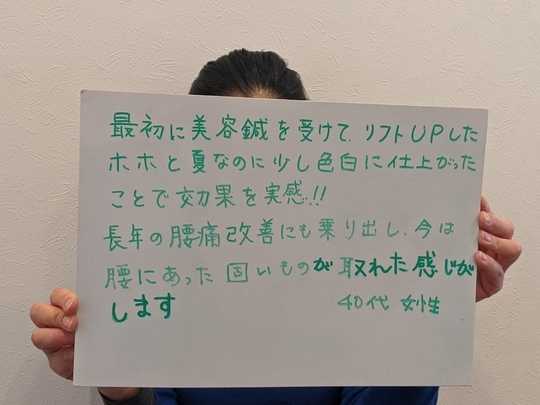 最初に美容鍼を受けて、リフトUPした
ホホと夏なのに少し色白に仕上がった
ことで効果を実感!!
長年の腰痛改善にも乗り出し、今は
腰にあった固いものが取れた感じが
します
40代 女性